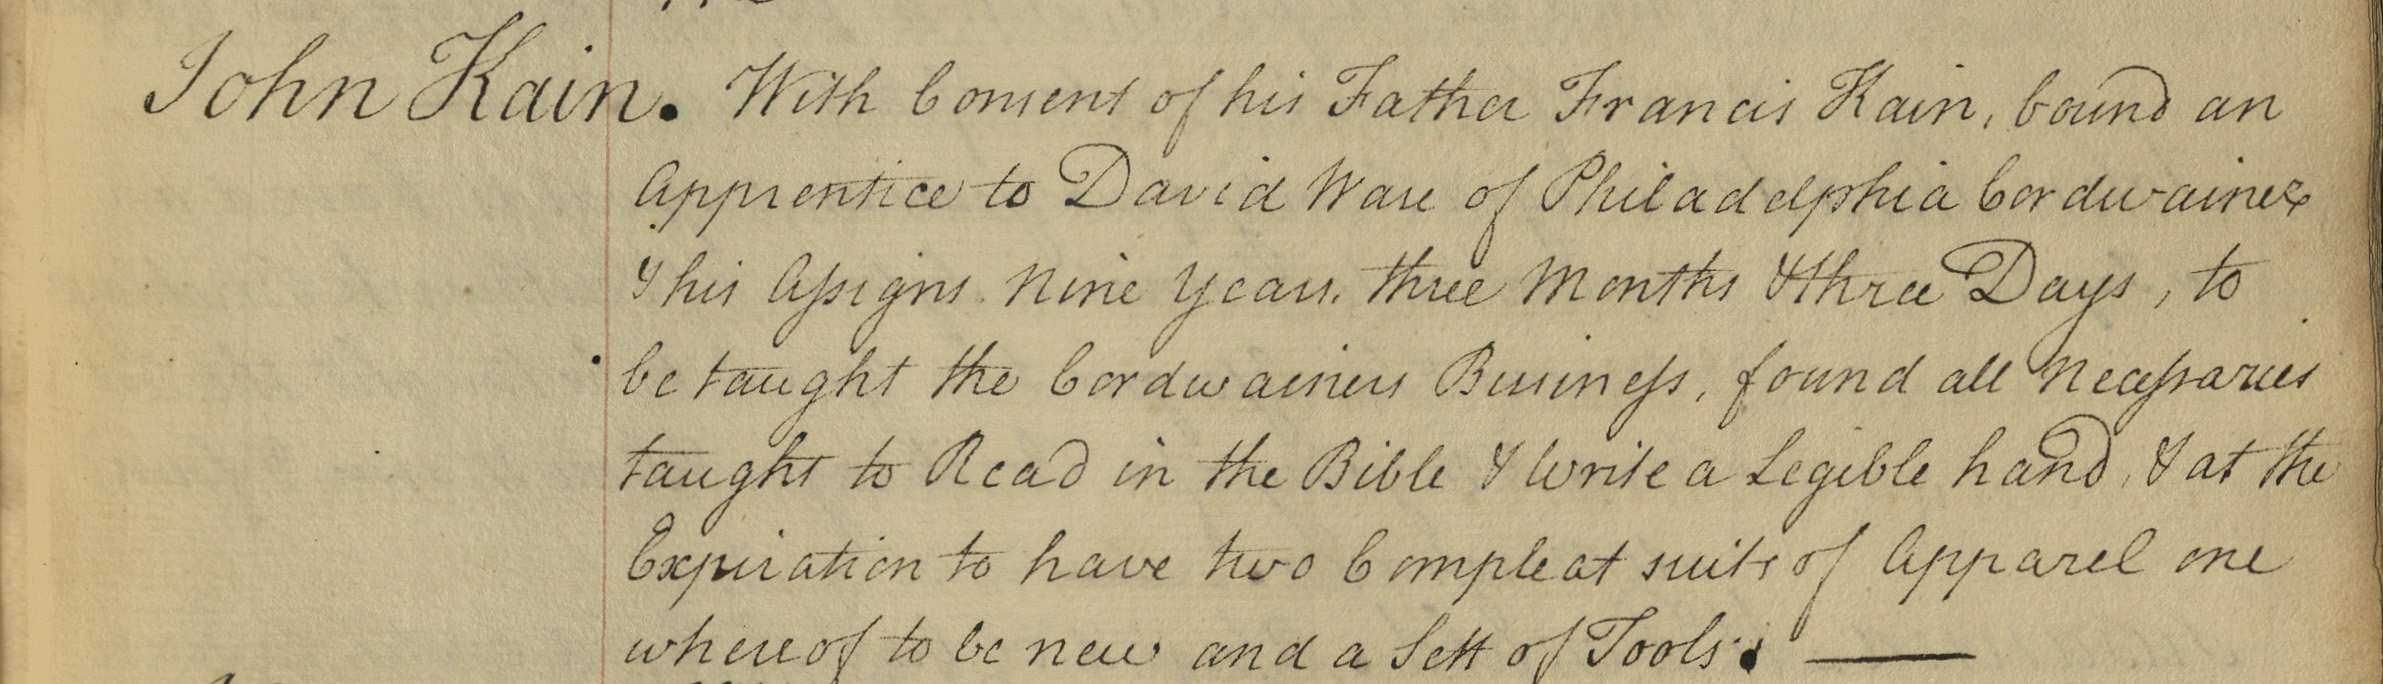 John Kain. With Consent of his Father Francis Kain, bound an
Apprentice to David Ware of Philadelphia Cordwainer
& his Assigns Nine Years. three Months & three Days, to
be taught the Cordwainers Business, found all Necessaries
taught to Read in the Bible & Write a Legible hand, & at the
Expiration to have two Compleat suits of Apparel one
whereof to be new and a Sett of Tools.